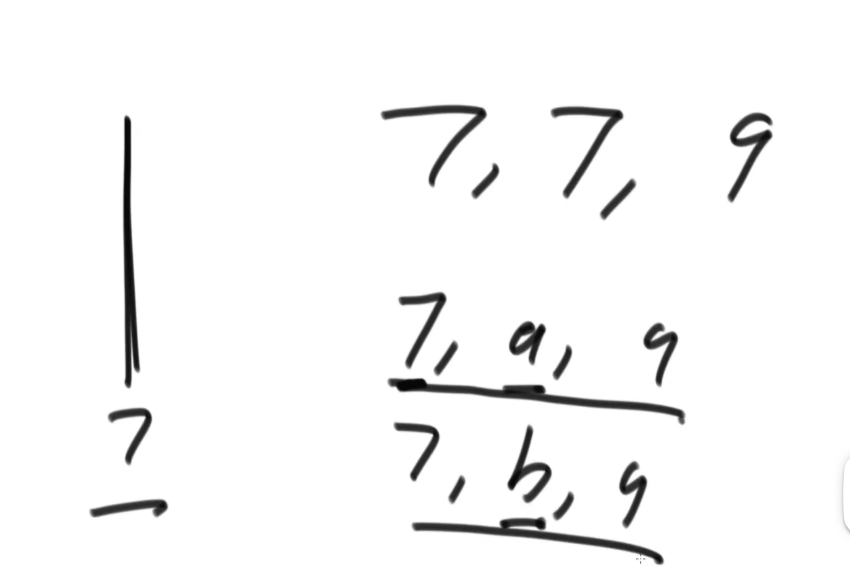 7, 7, 9
7, a, 9
7
7, b, 9